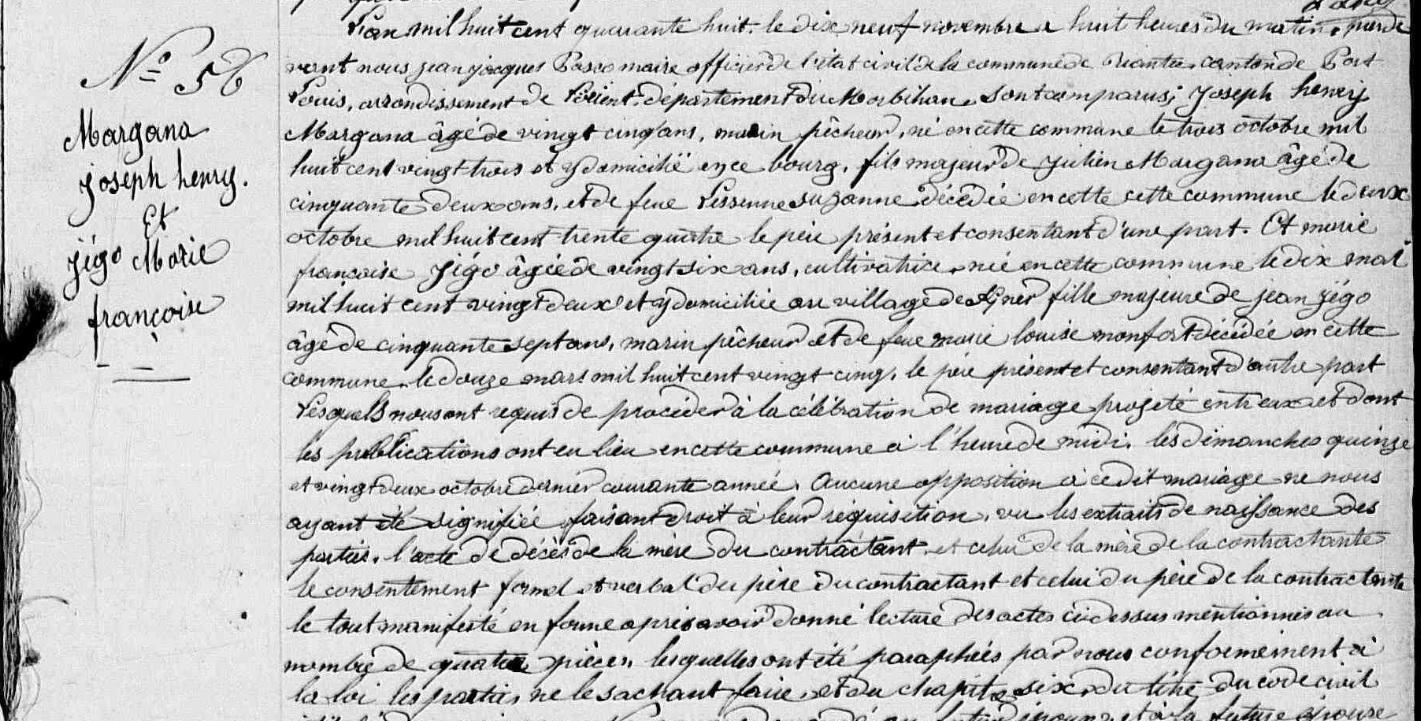 N° 56
Margana
Joseph henry.
Et
Jégo Marie
françoise
L'an mil huit cent quarante huit, le dix neuf novembre a huit heures du matin, parde
vant nous jean jacques Pasco maire officier de l'état civil de la commune de Riantec canton de Port
Louis, arrondissement de Lorient, département du Morbihan, sont comparus; Joseph henry
Margana âgé de vingt cinq ans, marin pêcheur, né en cette commune le trois octobre mil
huit cent vingt trois et y domicilié en ce bourg, fils majeur de Julien Margana âgé de
cinquante deux ans, et de feue suzanne décédée en cette cette commune le deux
octobre mil huit cent trente quatre le père présent et consentant d'une part. Et marie
françoise Jégo âgée de vingt six ans, cultivatrice née en cette commune le dix mai
mil huit cent vingt deux et y domiciliée au village de fille majeure de jean jégo
âgé de cinquante sept ans, marin pêcheur et de feue marie louise monfort décédée en cette
commune le douze mars mil huit cent vingt cinq, le père présent et consentant d'autre part
Lesquels nous ont requis de procéder à la célébration de mariage projeté entr'eux et dont
les publications ont eu lieu en cette commune à l'heure de midi, les dimanches quinze
et vingt deux octobre dernier courante année. Aucune opposition à ce dit mariage ne nous
ayant été signifiée faisant droit à leur réquisition, vu les extraits de naissance des
parties, l'acte de décès de la mère du contractant, et celui de la mère de la contractante
le consentement formel et verbal du père du contractant et celui du père de la contractante
le tout manifesté en forme après avoir donné lecture des actes ci dessus mentionnés au
nombre de quatre pièces, lesquelles ont été paraphées par nous conformément à
la loi les parties ne le sachant faire, et du chapitre six du titre du code civil